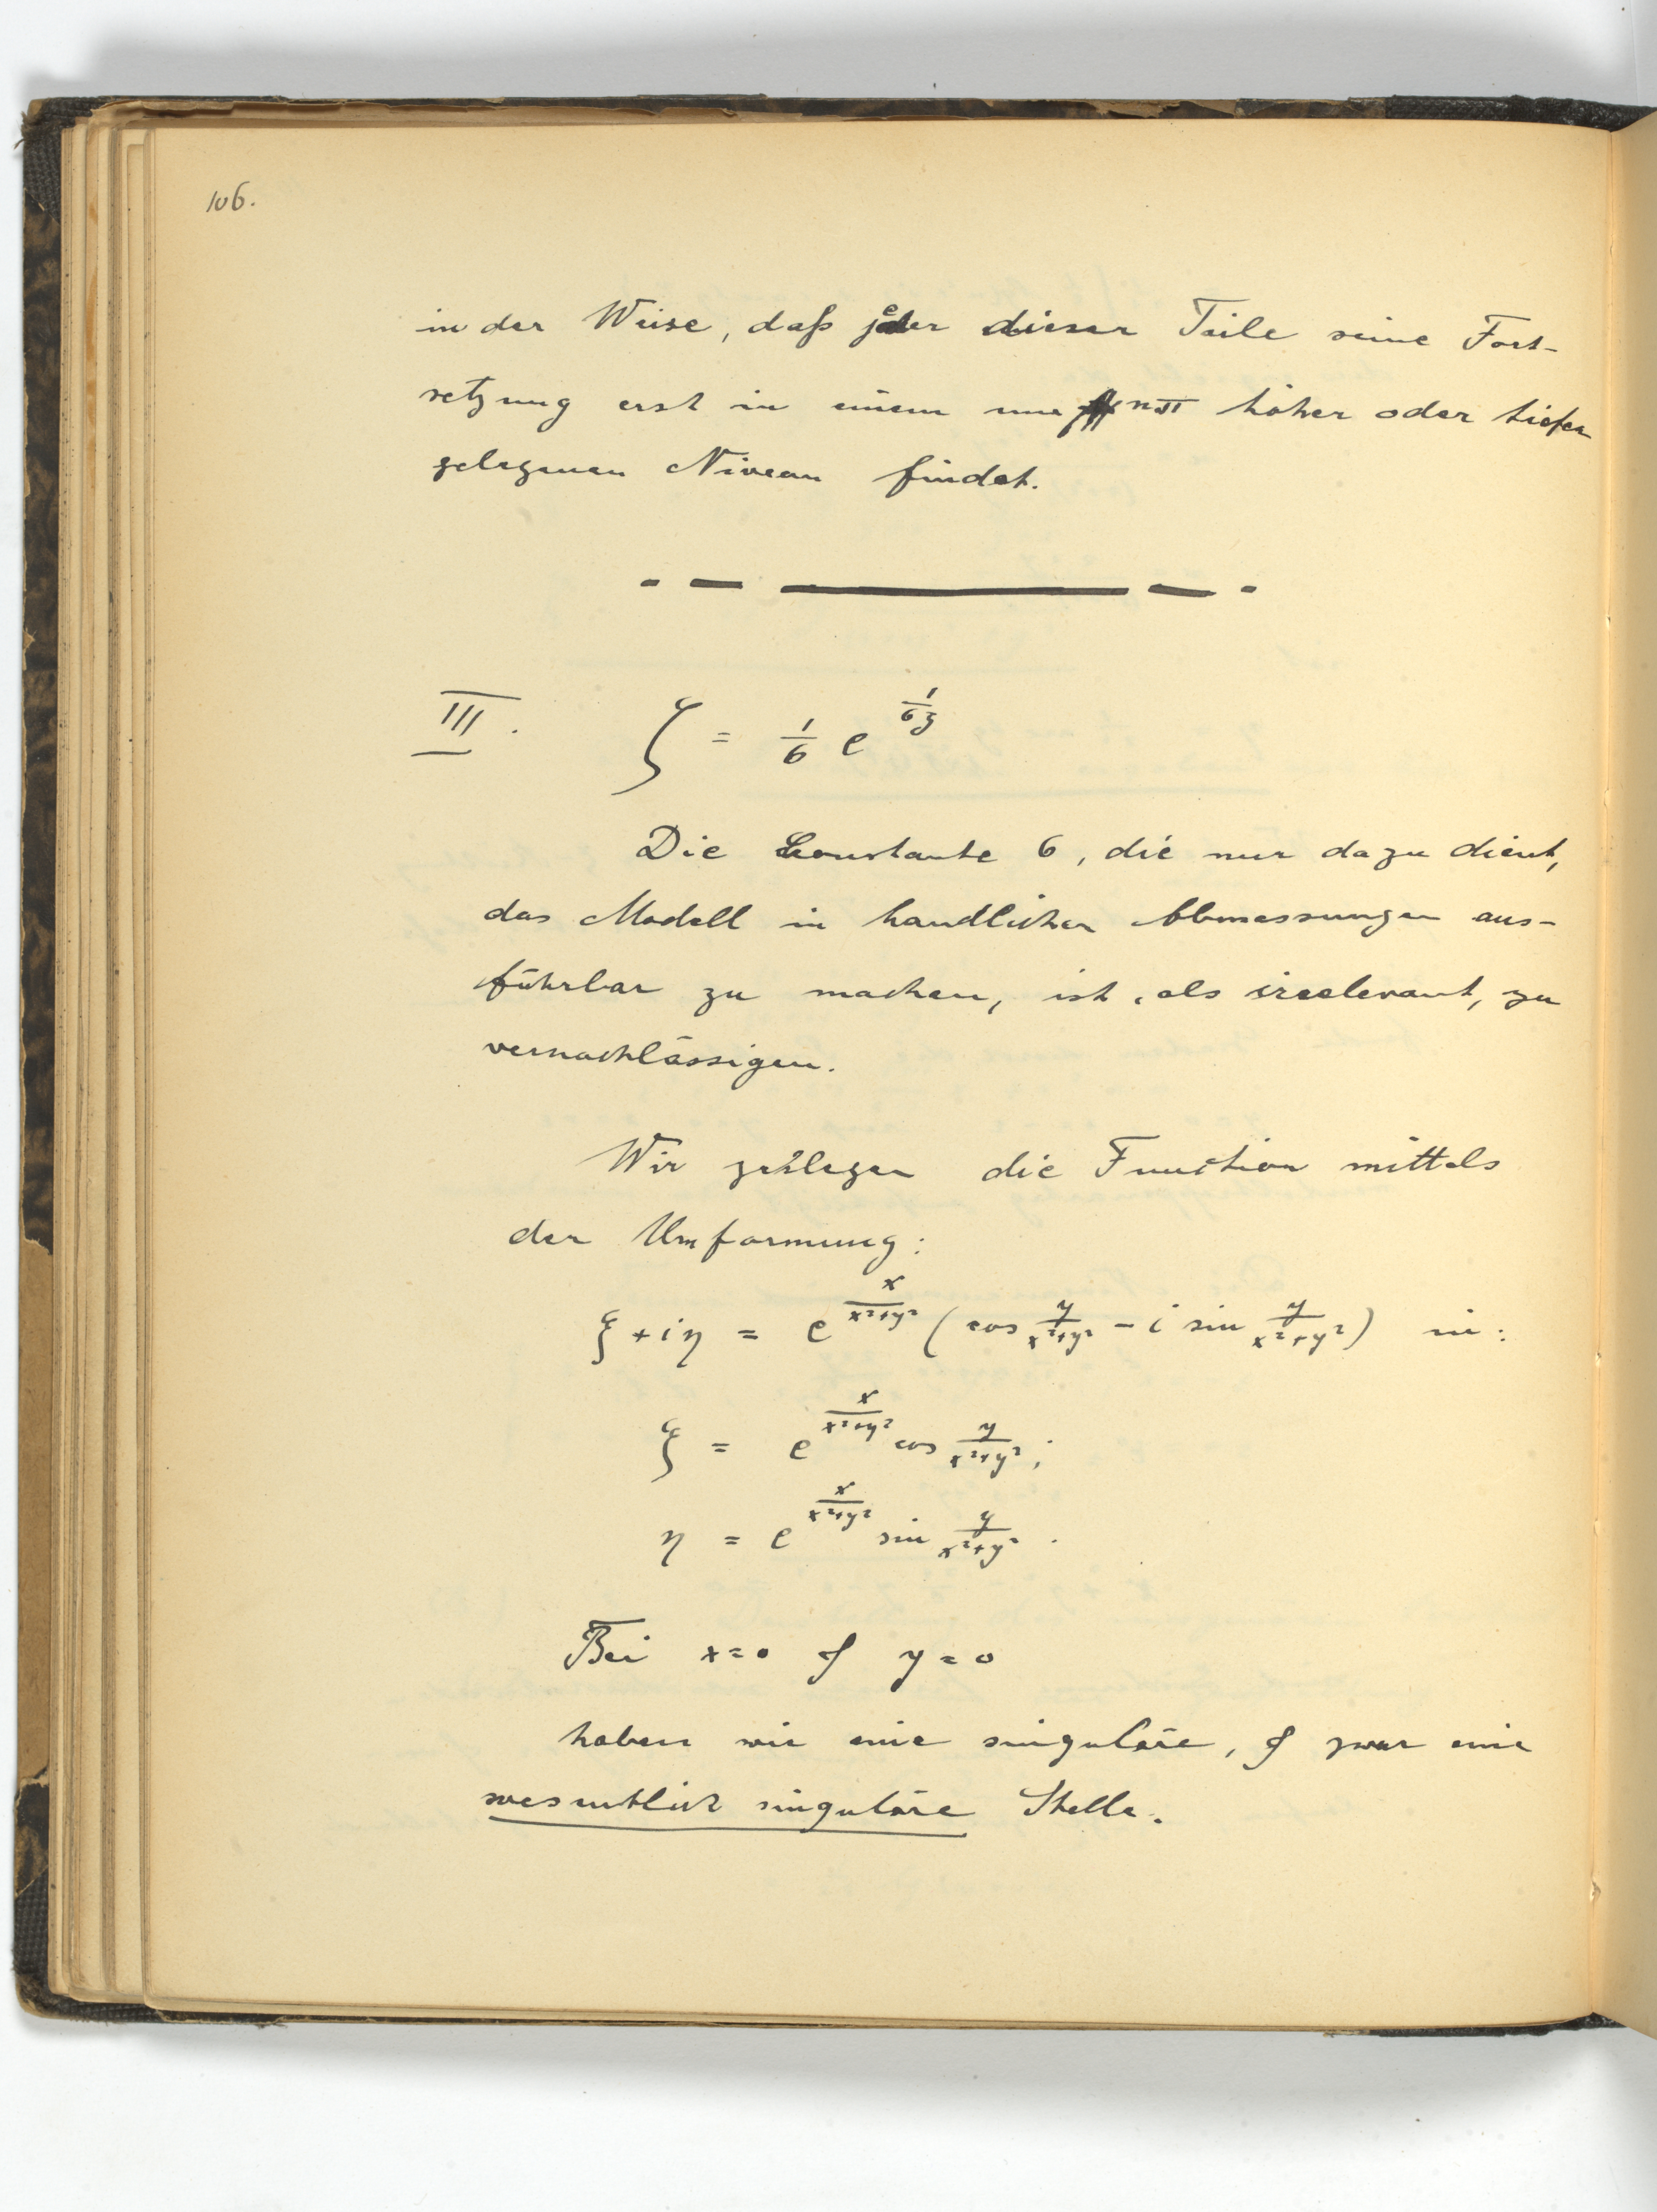 106.
in der Weise, daß jeder dieser Teile seine Fort-
setzung erst in einem um nπ höher oder tiefer
gelegenen Niveau findet.
III. ζ = 1/6 e^(1/6z)
Die Konstante 6, die nur dazu dient,
das Modell in handlichen Abmessungen aus-
führbar zu machen, ist, als irrelevant, zu
vernachlässigen.
Wir zerlegen die Function mittels
der Umformung:
ξ + iη = e^(x/(x²+y²)) (cos y/(x²+y²) - i sin y/(x²+y²)) in:
ξ = e^(x/(x²+y²)) cos y/(x²+y²);
η = e^(x/(x²+y²)) sin y/(x²+y²).
Bei x=0 & y=0
haben wir eine singuläre, & zwar eine
wesentlich singuläre Stelle.